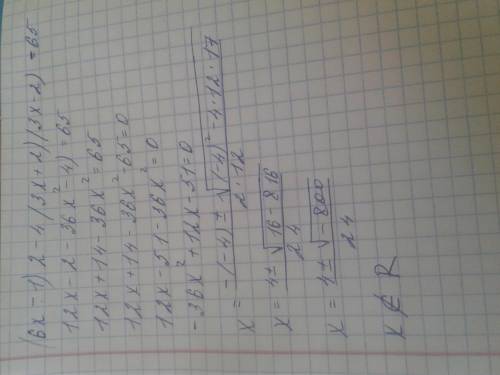 (6x-1)2-4(3x+2)(3x-2)=65
12x-2-36x²-4)=65
12x+14-36x²=65
12x+14-36x²-65=0
12x-51-36x²=0
-36x²+12x-51=0
x = -(-4)±√(-4)²-4·12·17 / 2·12
x = 4±√16-816 / 24
x = 4±√-800 / 24
x∉R